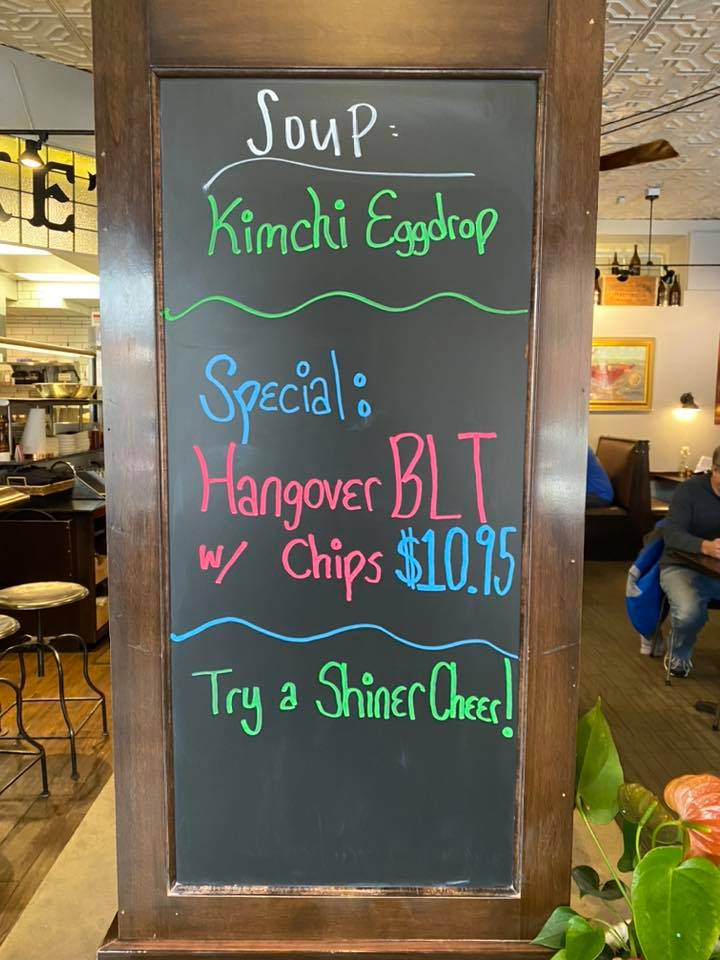 Soup:
Kimchi Eggdrop
Special:
Hangover BLT
w/ Chips $10.95
Try a Shiner Cheer!